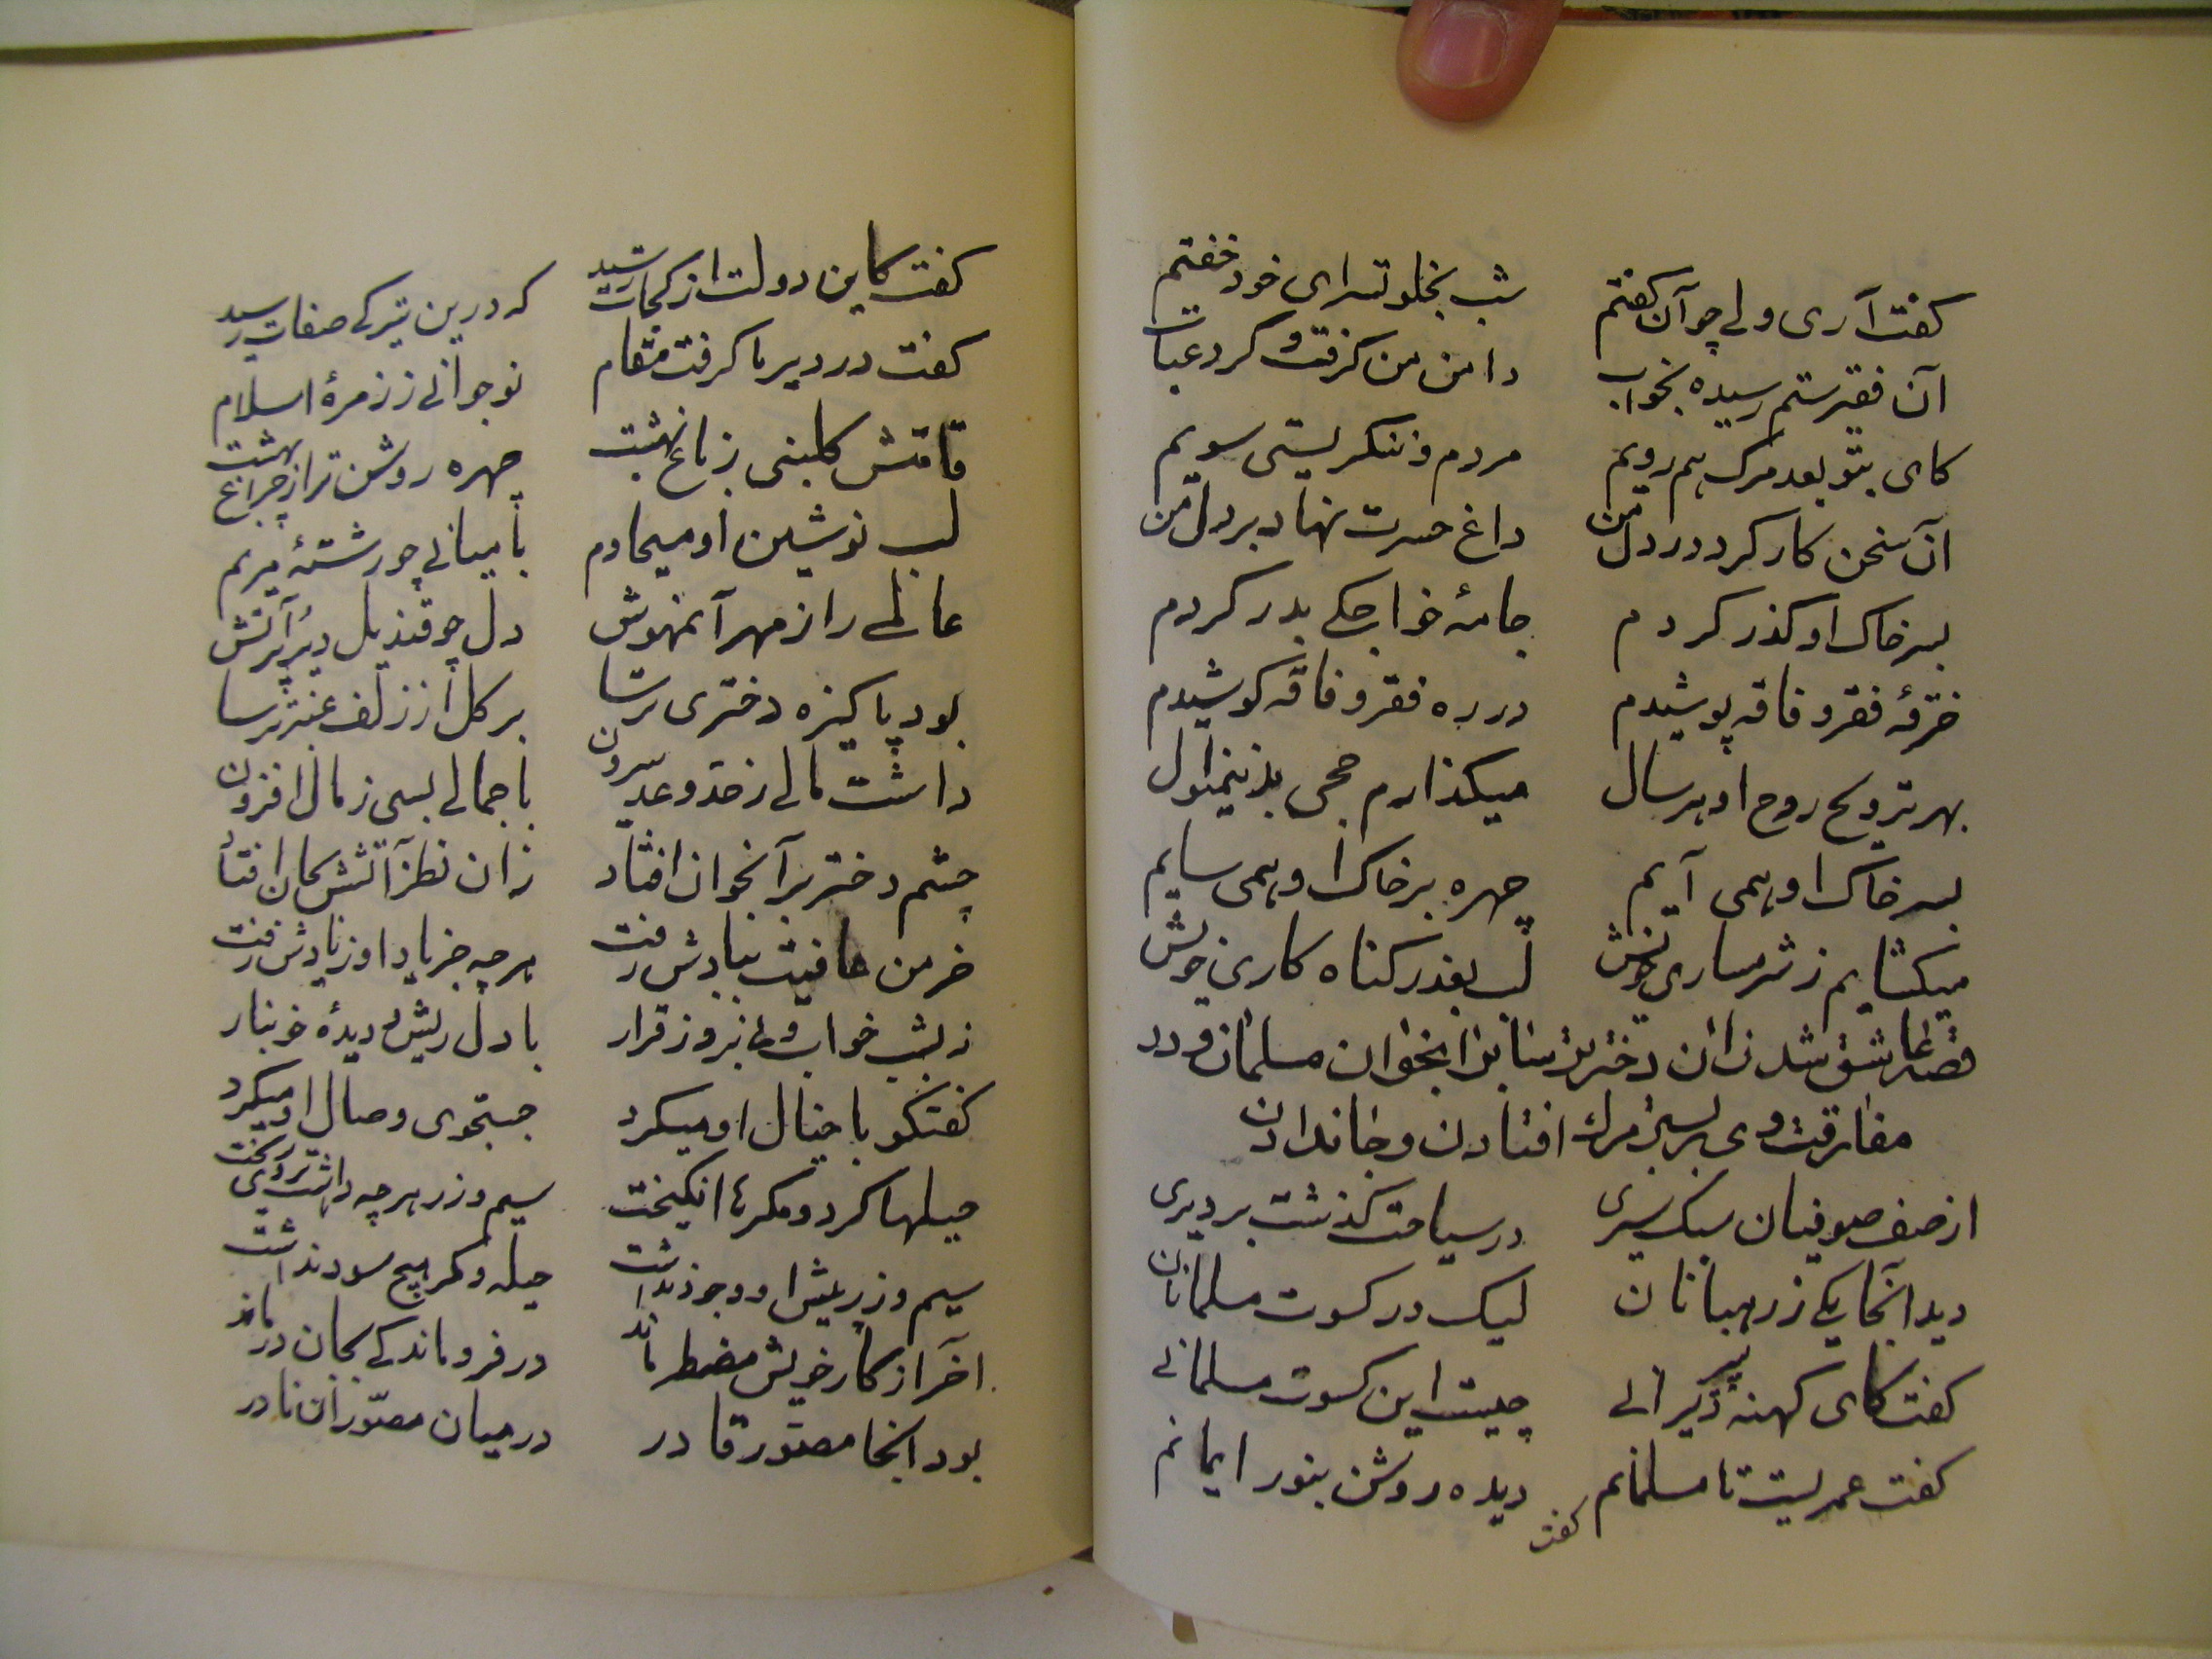 کفت آری ولی چو آن کفتم شب بخلوتسرای خود خفتم
آن فقیر ستم رسیده بخواب دامن من کرفت و کرد عتاب
کای بتو بعد مرک هم رویم مردم و ننکریستی سویم
آن سخن کار کرد در دل من داغ حسرت نهاد بر دل من
بسر خاک او کذر کردم جامهٔ خواجکی بدر کردم
خرقهٔ فقر و فاقه پوشیدم در ره فقر و فاقه کوشیدم
بهر ترویح روح او هر سال میکذارم حجی بدینمنوال
بسر خاک او همی آیم چهره بر خاک او همی سایم
میکشایم ز شرمساری خویش لب بعذر کناه کاری خویش
قصه عاشق شدن آن دختر ترسا بر آنجوان مسلمان و در
مفارقت وی بر بستر مرک افتادن و جاندادن
از صف صوفیان سبک سیری در سیاحت کذشت بر دیری
دید آنجا یکی ز رهبانان لیک در کسوت مسلمانان
کفت کای کهنه پیر دیرانی چیست این کسوت مسلمانی
کفت عمریست تا مسلمانم دیده روشن بنور ایمانم
کفت
کفت کاین دولت از کجات رسید که درین تیرکی صفات رسید
کفت در دیر ما کرفت مقام نوجوانی ز زمرهٔ اسلام
قامتش کلبنی ز باغ بهشت چهره روشن تر از چراغ بهشت
لب نوشین او مسیحا دم با میانی چو رشتهٔ مریم
عالمی را ز مهر آنمهوش دل چو قندیل دیر پر آتش
بود پاکیزه دختری ترسا بر کل از زلف عنبر ترسا
داشت مالی ز حد و عد بیرون با جمالی بسی ز مال افزون
چشم دختر بر آنجوان افتاد زان نظر آتشش بجان افتاد
خرمن عافیت ببادش رفت هرچه جز یاد او ز یادش رفت
نه بشب خواب و نه بروز قرار با دل ریش و دیدهٔ خونبار
کفتکو با خیال او میکرد جستجوی وصال او میکرد
حیلها کرد و مکرها انکیخت سیم و زر هرچه داشت بر وی ریخت
سیم و زر پیش او وجود نداشت حیله و مکر هیچ سود نداشت
آخر از کار خویش مضطر ماند در فروماندکی بجان درماند
بود آنجا مصوّر قادر در میان مصوّران نادر